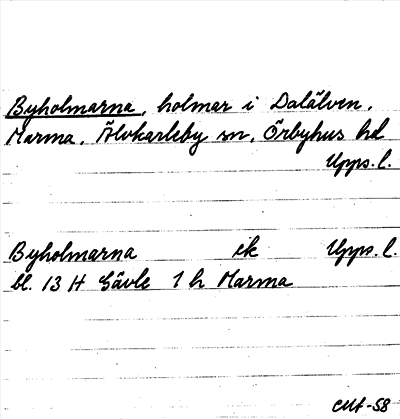 Byholmarna, holmar i Dalälven,
Marma, Älvkarleby sn, Örbyhus hd
Upps. l.
Byholmarna ek Upps. l.
bl. 13 H Gävle 1 h Marma
CMf-58